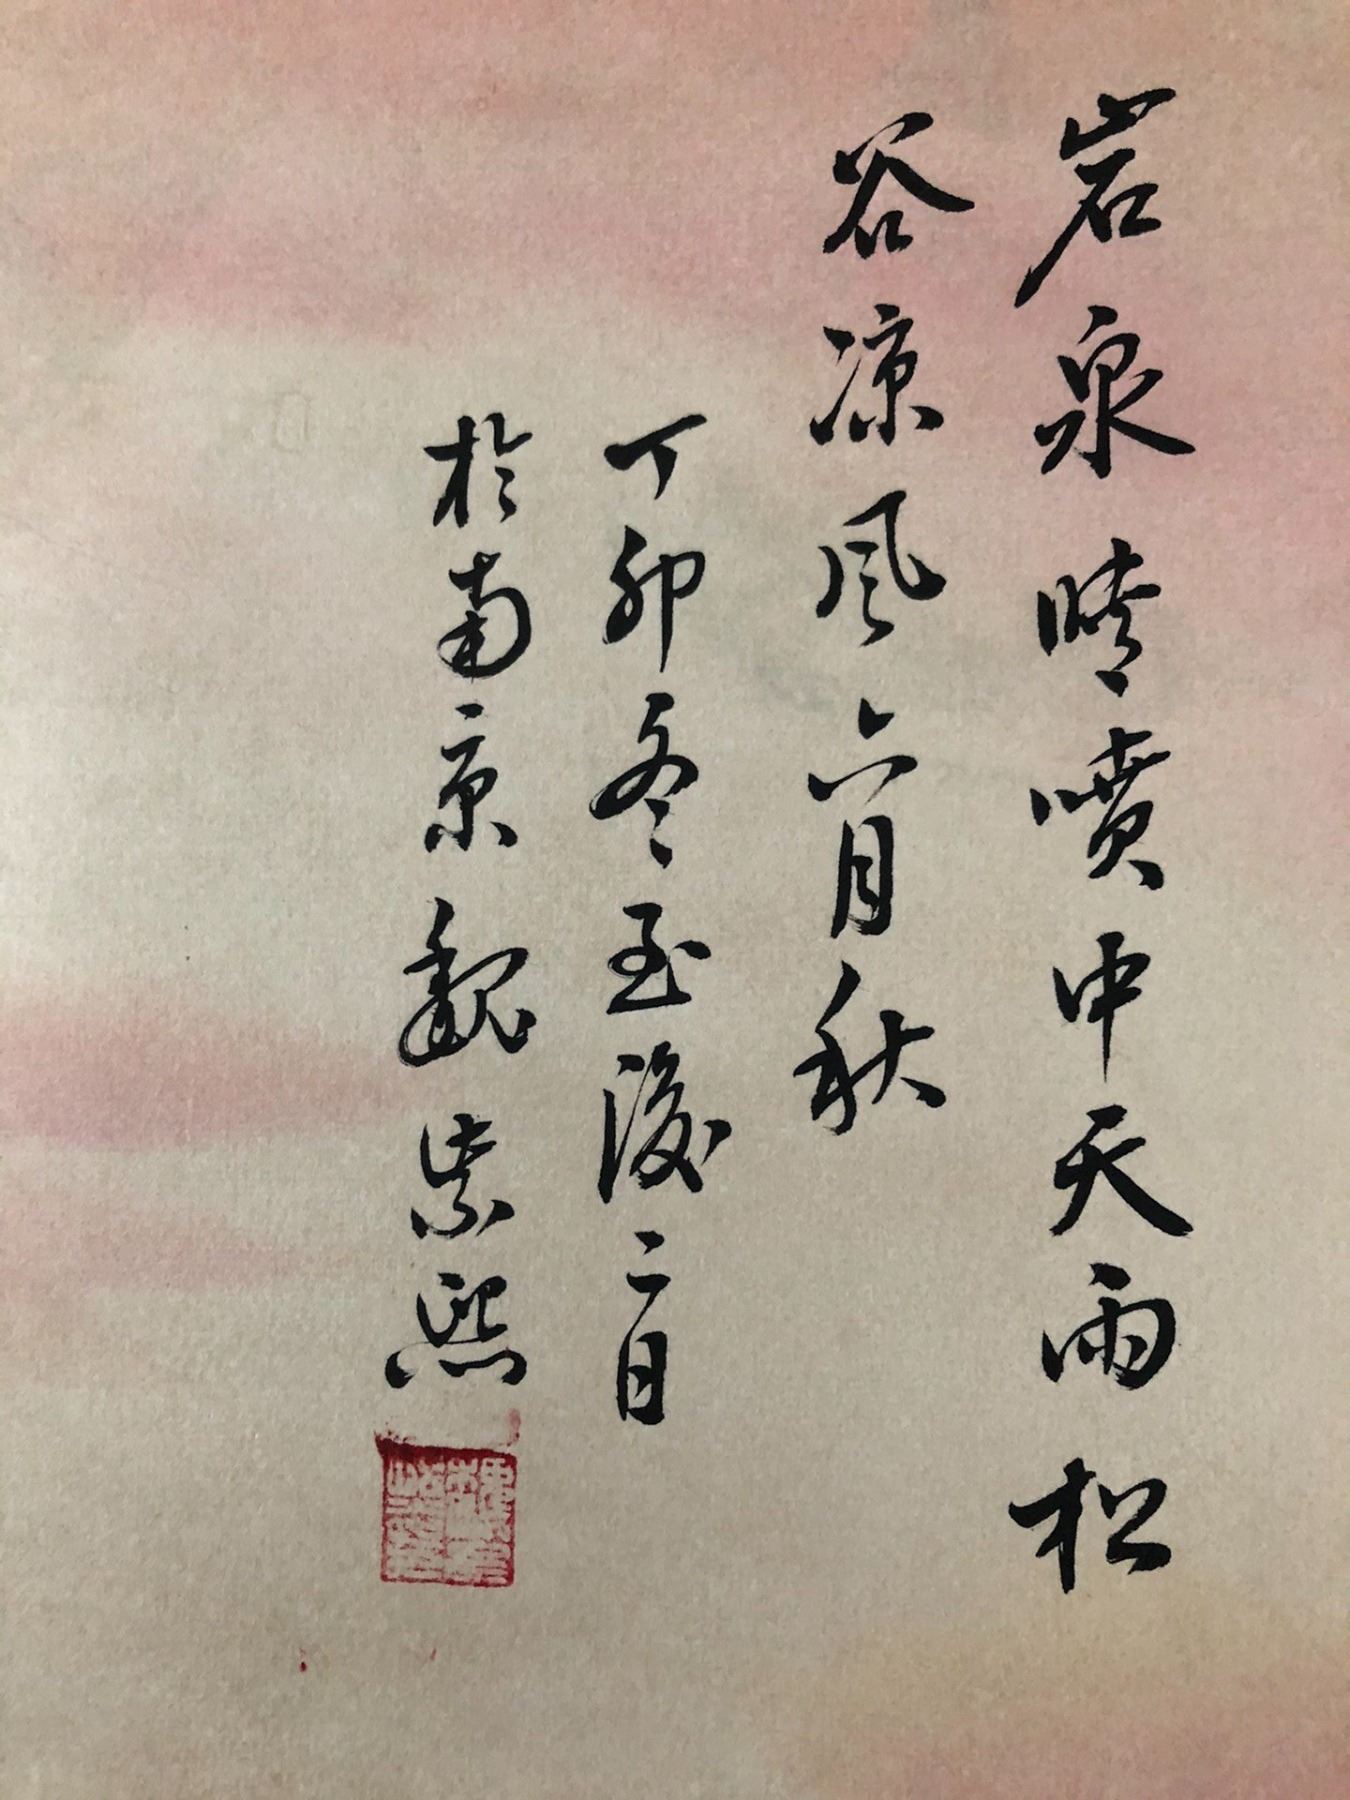 岩泉晴噴中天雨松
谷凉风六月秋
丁卯冬至後二日
於南京魏紫熙